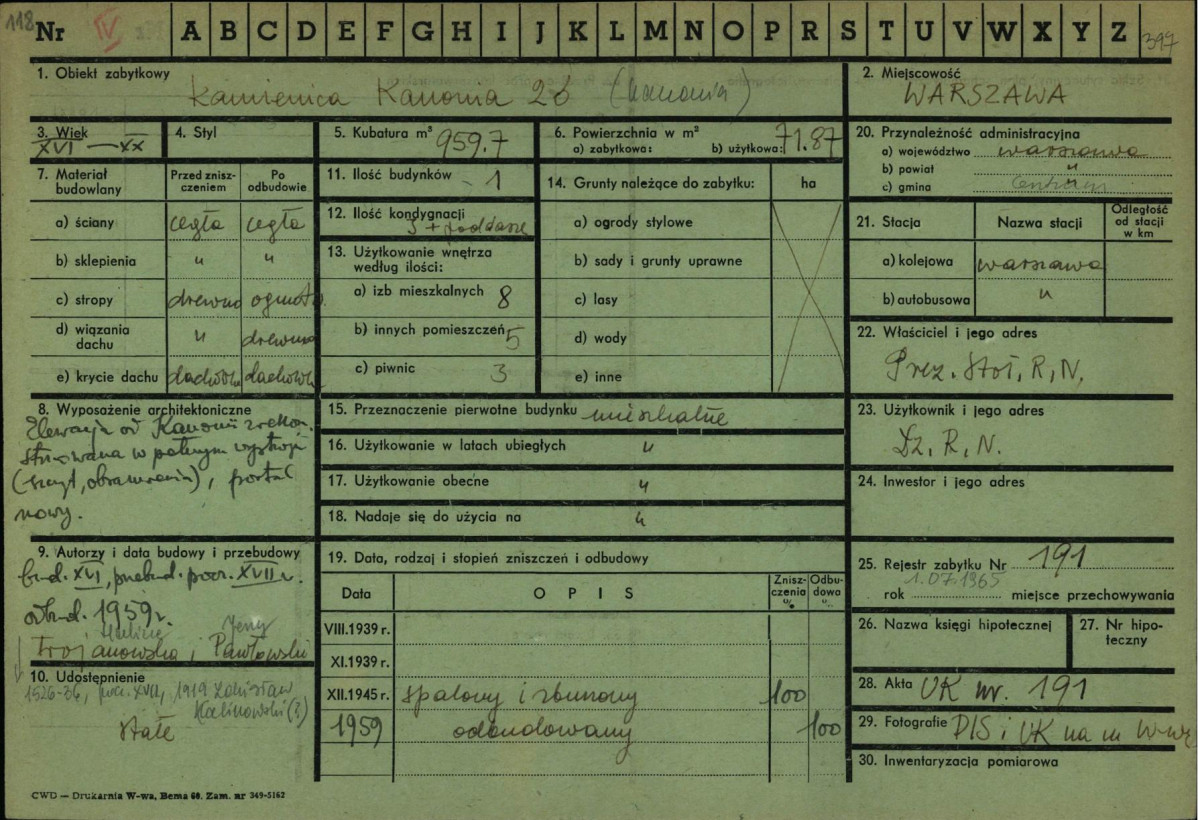 118
Nr IV A B C D E F G H I J K L M N O P R S T U V W X Y Z 397
1. Obiekt zabytkowy
Kamienica Kanonia 26 (kanonia)
2. Miejscowość
WARSZAWA
3. Wiek
XVI — XX
4. Styl
5. Kubatura m³ 959.7
6. Powierzchnia w m²
a) zabytkowa: b) użytkowa: 71.87
20. Przynależność administracyjna
a) województwo warszawa
b) powiat "
c) gmina Centrum
7. Materiał budowlany
Przed zniszczeniem
Po odbudowie
a) ściany cegła cegła
b) sklepienia " "
c) stropy drewno ogniotr.
d) wiązania dachu " drewno
e) krycie dachu dachówka dachówka
11. Ilość budynków 1
12. Ilość kondygnacji
3 + poddasze
13. Użytkowanie wnętrza według ilości:
a) izb mieszkalnych 8
b) innych pomieszczeń 5
c) piwnic 3
14. Grunty należące do zabytku: ha
a) ogrody stylowe
b) sady i grunty uprawne
c) lasy
d) wody
e) inne
21. Stacja
Nazwa stacji
Odległość od stacji w km
a) kolejowa warszawa
b) autobusowa "
22. Właściciel i jego adres
Prez. Stoł. R. N.
8. Wyposażenie architektoniczne
Elewacja od Kanonii zrekon-
struowana w pełnym wystroju
(szczyt, obramienia), portal
nowy.
15. Przeznaczenie pierwotne budynku mieszkalne
16. Użytkowanie w latach ubiegłych "
17. Użytkowanie obecne "
18. Nadaje się do użycia na "
23. Użytkownik i jego adres
Dz. R. N.
24. Inwestor i jego adres
9. Autorzy i data budowy i przebudowy
bud. XVI, przebud. pocz. XVII w.
odbud. 1959 r.
Halina Jerzy
Trojanowska i Pawłowski
10. Udostępnienie
1526-36, pocz. XVII, 1919 Zdzisław
Kalinowski (?)
stałe
19. Data, rodzaj i stopień zniszczeń i odbudowy
Data
OPIS
Zniszczenia %
Odbudowa %
VIII.1939 r.
XI.1939 r.
XII.1945 r. spalony i zburzony 100
1959 odbudowany 100
25. Rejestr zabytku Nr 191
1.07.1965
rok miejsce przechowywania
26. Nazwa księgi hipotecznej
27. Nr hipoteczny
28. Akta UK nr. 191
29. Fotografie DIS i UK na m W-wę
30. Inwentaryzacja pomiarowa
CWD — Drukarnia W-wa, Bema 60. Zam. nr 349-5162